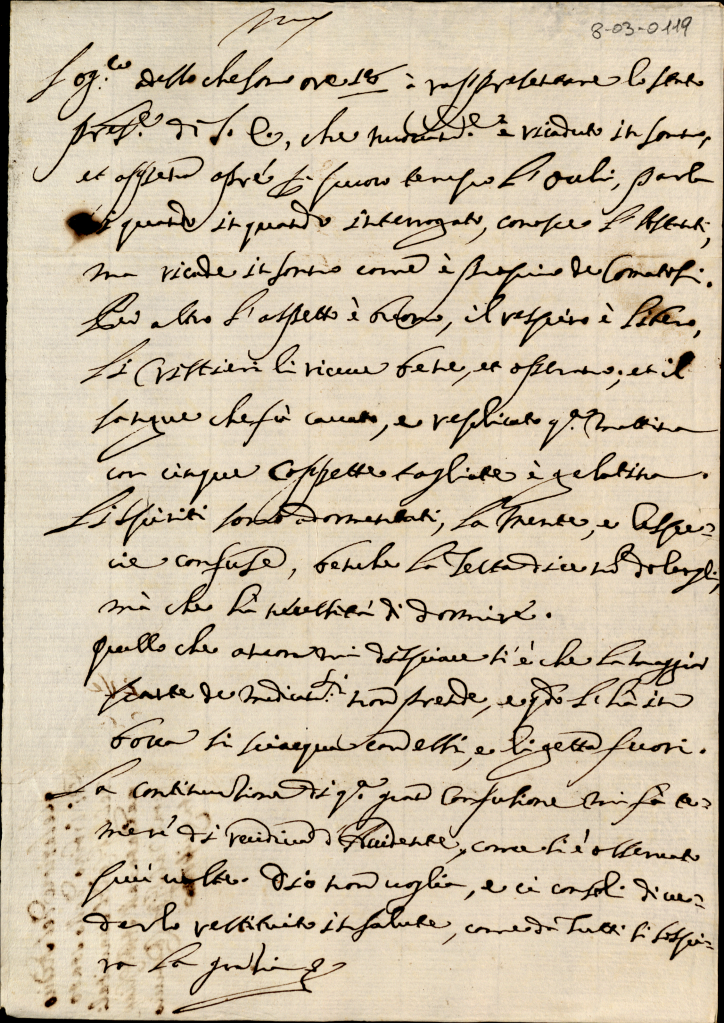 8-03-0119
Sog.to dello che sono ore 18 à rappresentare lo stato
pres.te di S. E., che nuovam.te è ricaduto in sonno,
et appena apre si puoco tempo l'occhi, parla
di quando in quando interrogato, conosce l'Astanti,
ma ricade in sonno come è proprio de Comatosi.
Per altro l'aspetto è buono, il respiro è libero,
li Cristieri li riceve bene, et osserva; et il
sangue che fù cavato, e replicato q.ta mattina
con cinque Coppette tagliate è gelatina.
Li spiriti sono adormentati, la Mente, e le spe-
cie confuse, benche la Testa dice non dolergli,
mà che hà necessità di dormire.
Quello che ancora mi dispiace si è che la maggior
parte de medicam.ti non prende, e q.do li hà in
bocca si sciacqua con essi, e li getta fuori.
La continuatione di q.ta gran Confusione mi fà te-
mere di recidiva d'Accidente, come si è osservato
più volte. Dio non voglia, e ci consoli di ve-
derlo restituito in salute, come da tutti si sospi-
ra la gratia